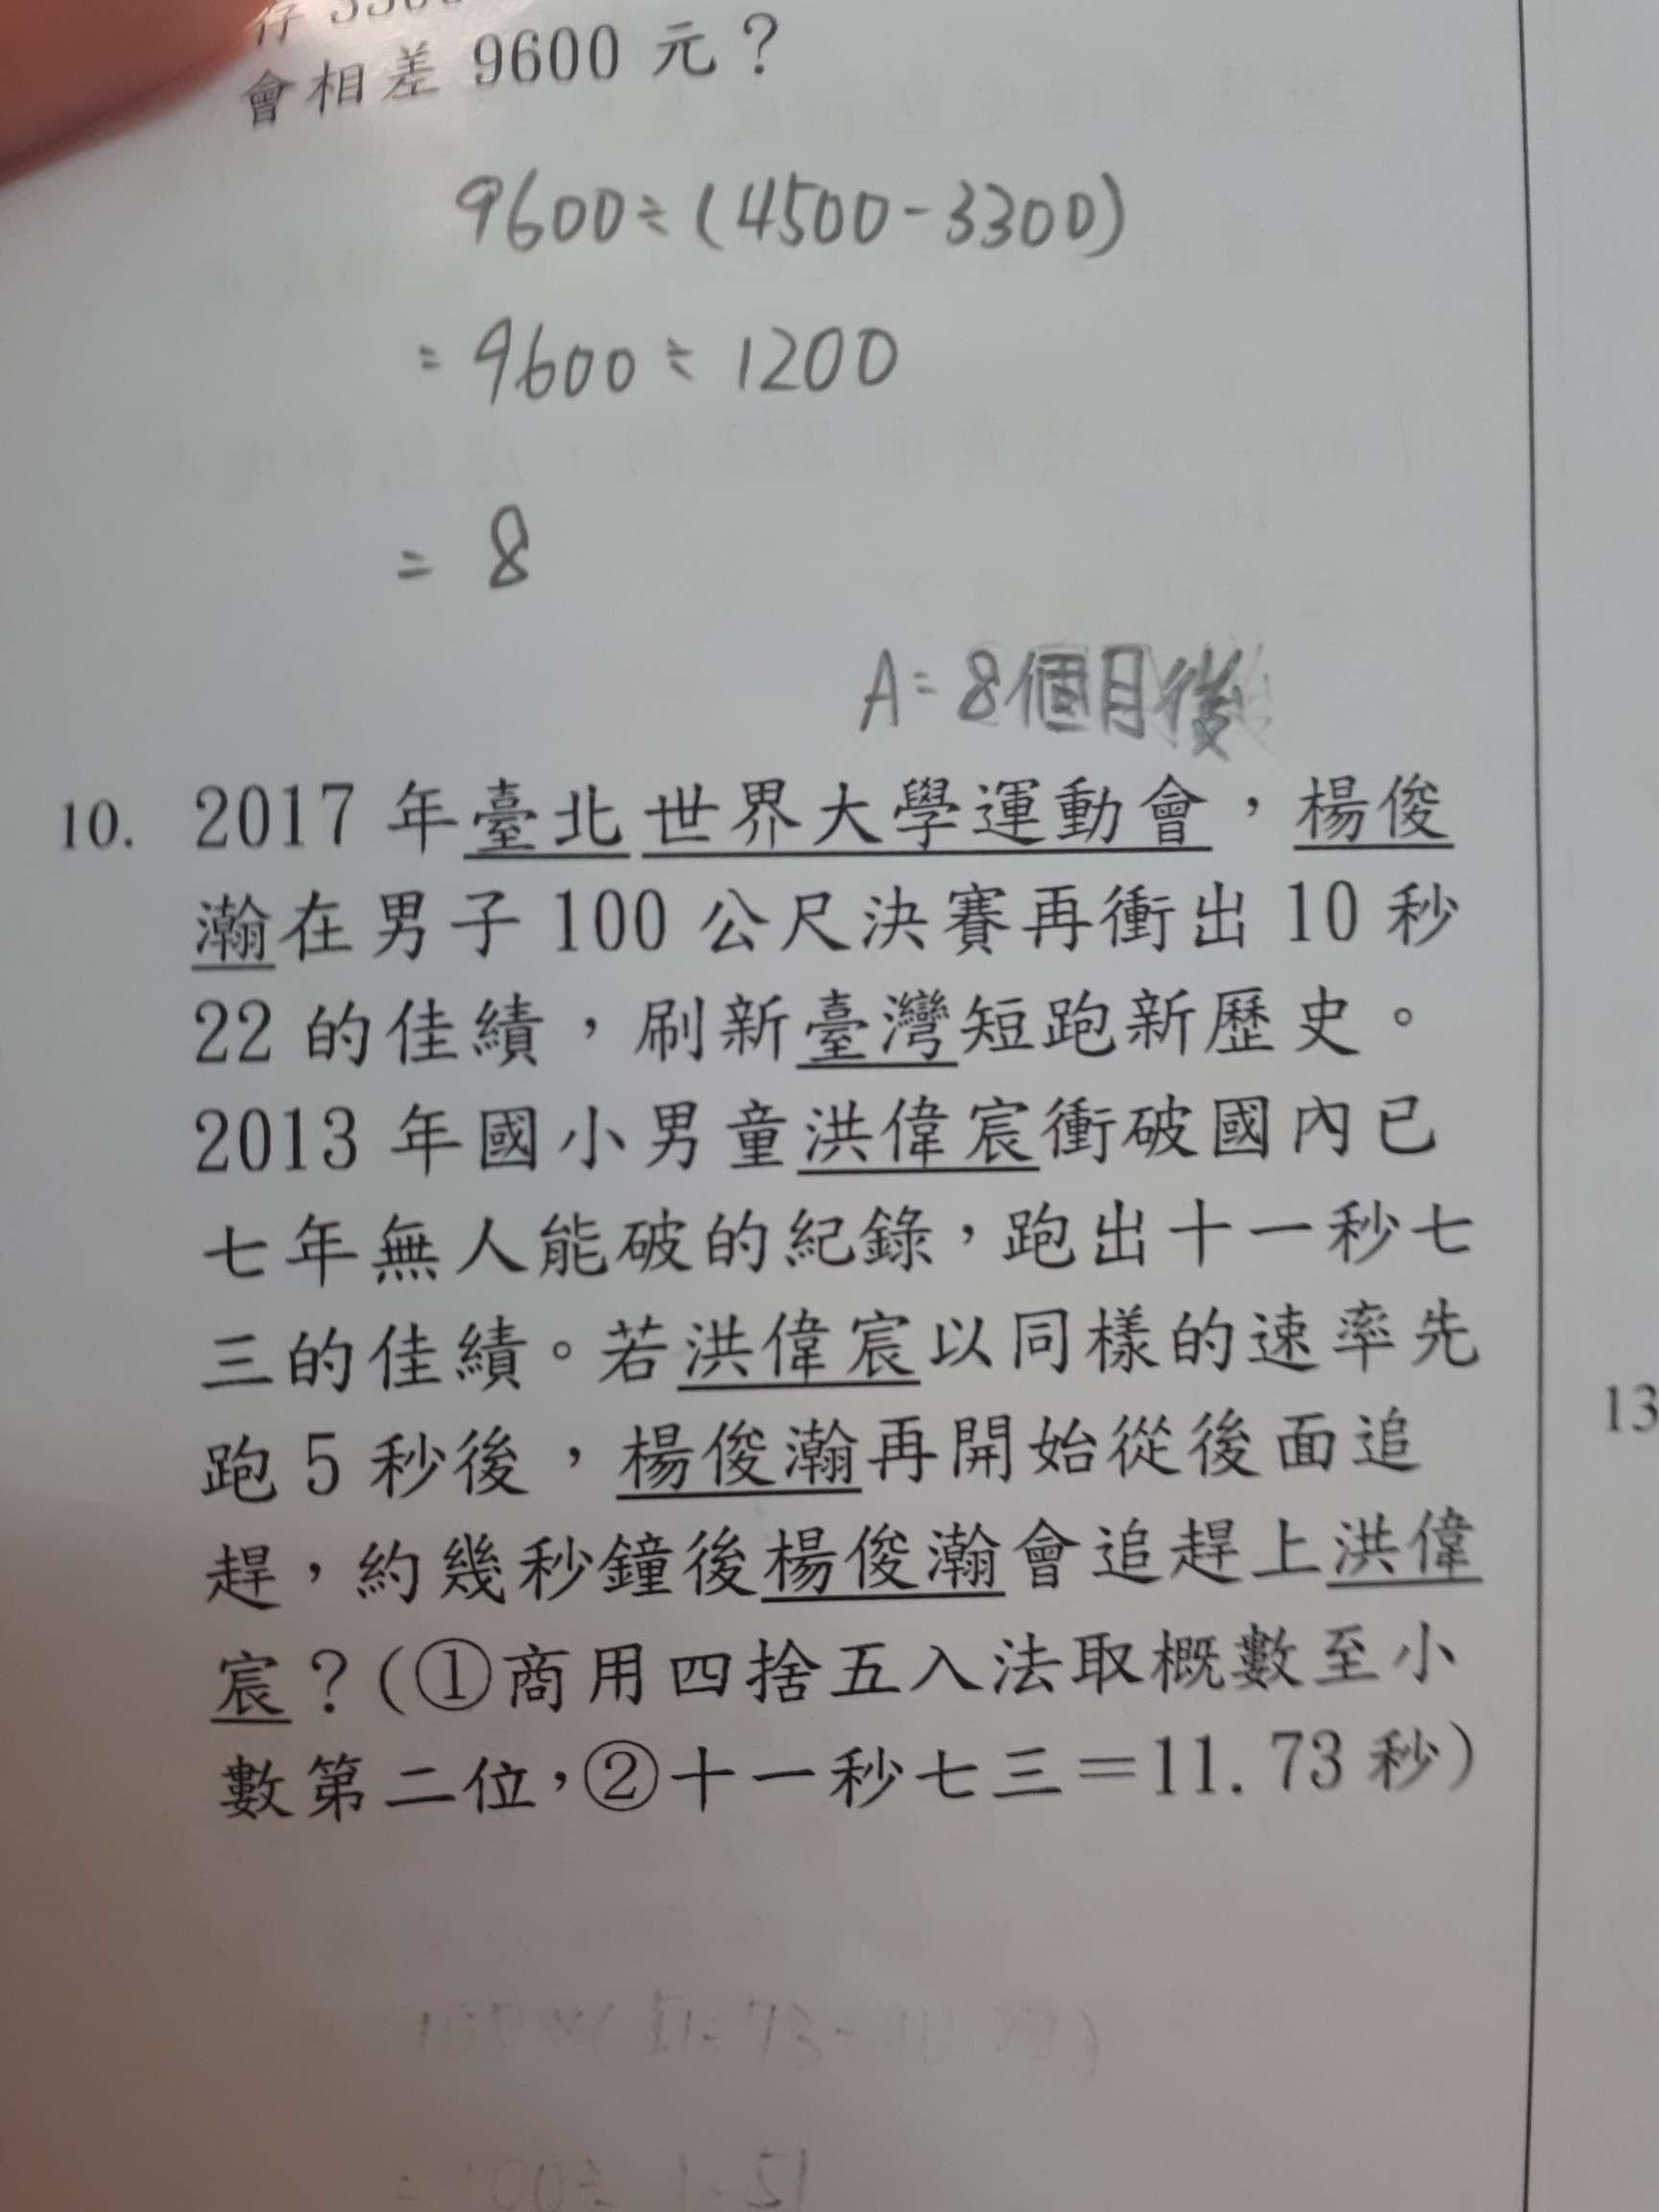 會相差 9600 元？
9600÷(4500-3300)
= 9600÷1200
= 8
A=8個月後
10. 2017 年臺北世界大學運動會，楊俊
瀚在男子 100 公尺決賽再衝出 10 秒
22 的佳績，刷新臺灣短跑新歷史。
2013 年國小男童洪偉宸衝破國內已
七年無人能破的紀錄，跑出十一秒七
三的佳績。若洪偉宸以同樣的速率先
跑 5 秒後，楊俊瀚再開始從後面追
趕，約幾秒鐘後楊俊瀚會追趕上洪偉
宸？(①商用四捨五入法取概數至小
數第二位，②十一秒七三＝11.73 秒)
13